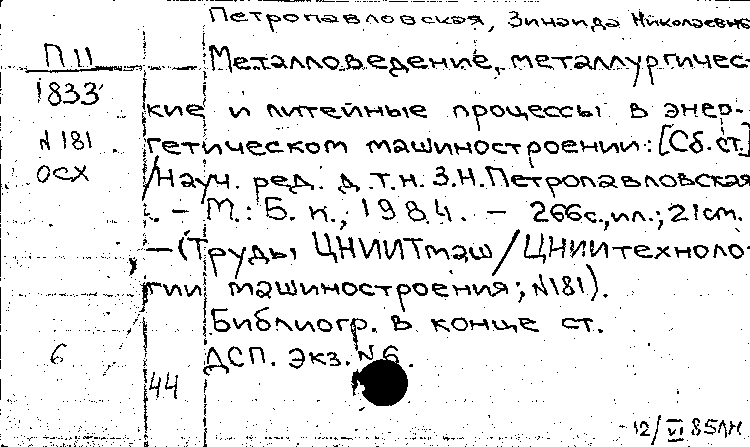 Петропавловская, Зинаида Николаевна
П 11
1833
N 181
ОСХ
Металловедение, металлургичес-
кие и литейные процессы в энер-
гетическом машиностроении: [Сб. ст.]
/Науч. ред. д.т.н. З.Н.Петропавловская
. – М.: Б. и., 1984. – 266с., ил.; 21см.
– (Труды ЦНИИТмаш / ЦНИИ техноло-
гии машиностроения; N181).
Библиогр. в конце ст.
6
ДСП. Экз. N6.
44
12/VI 85